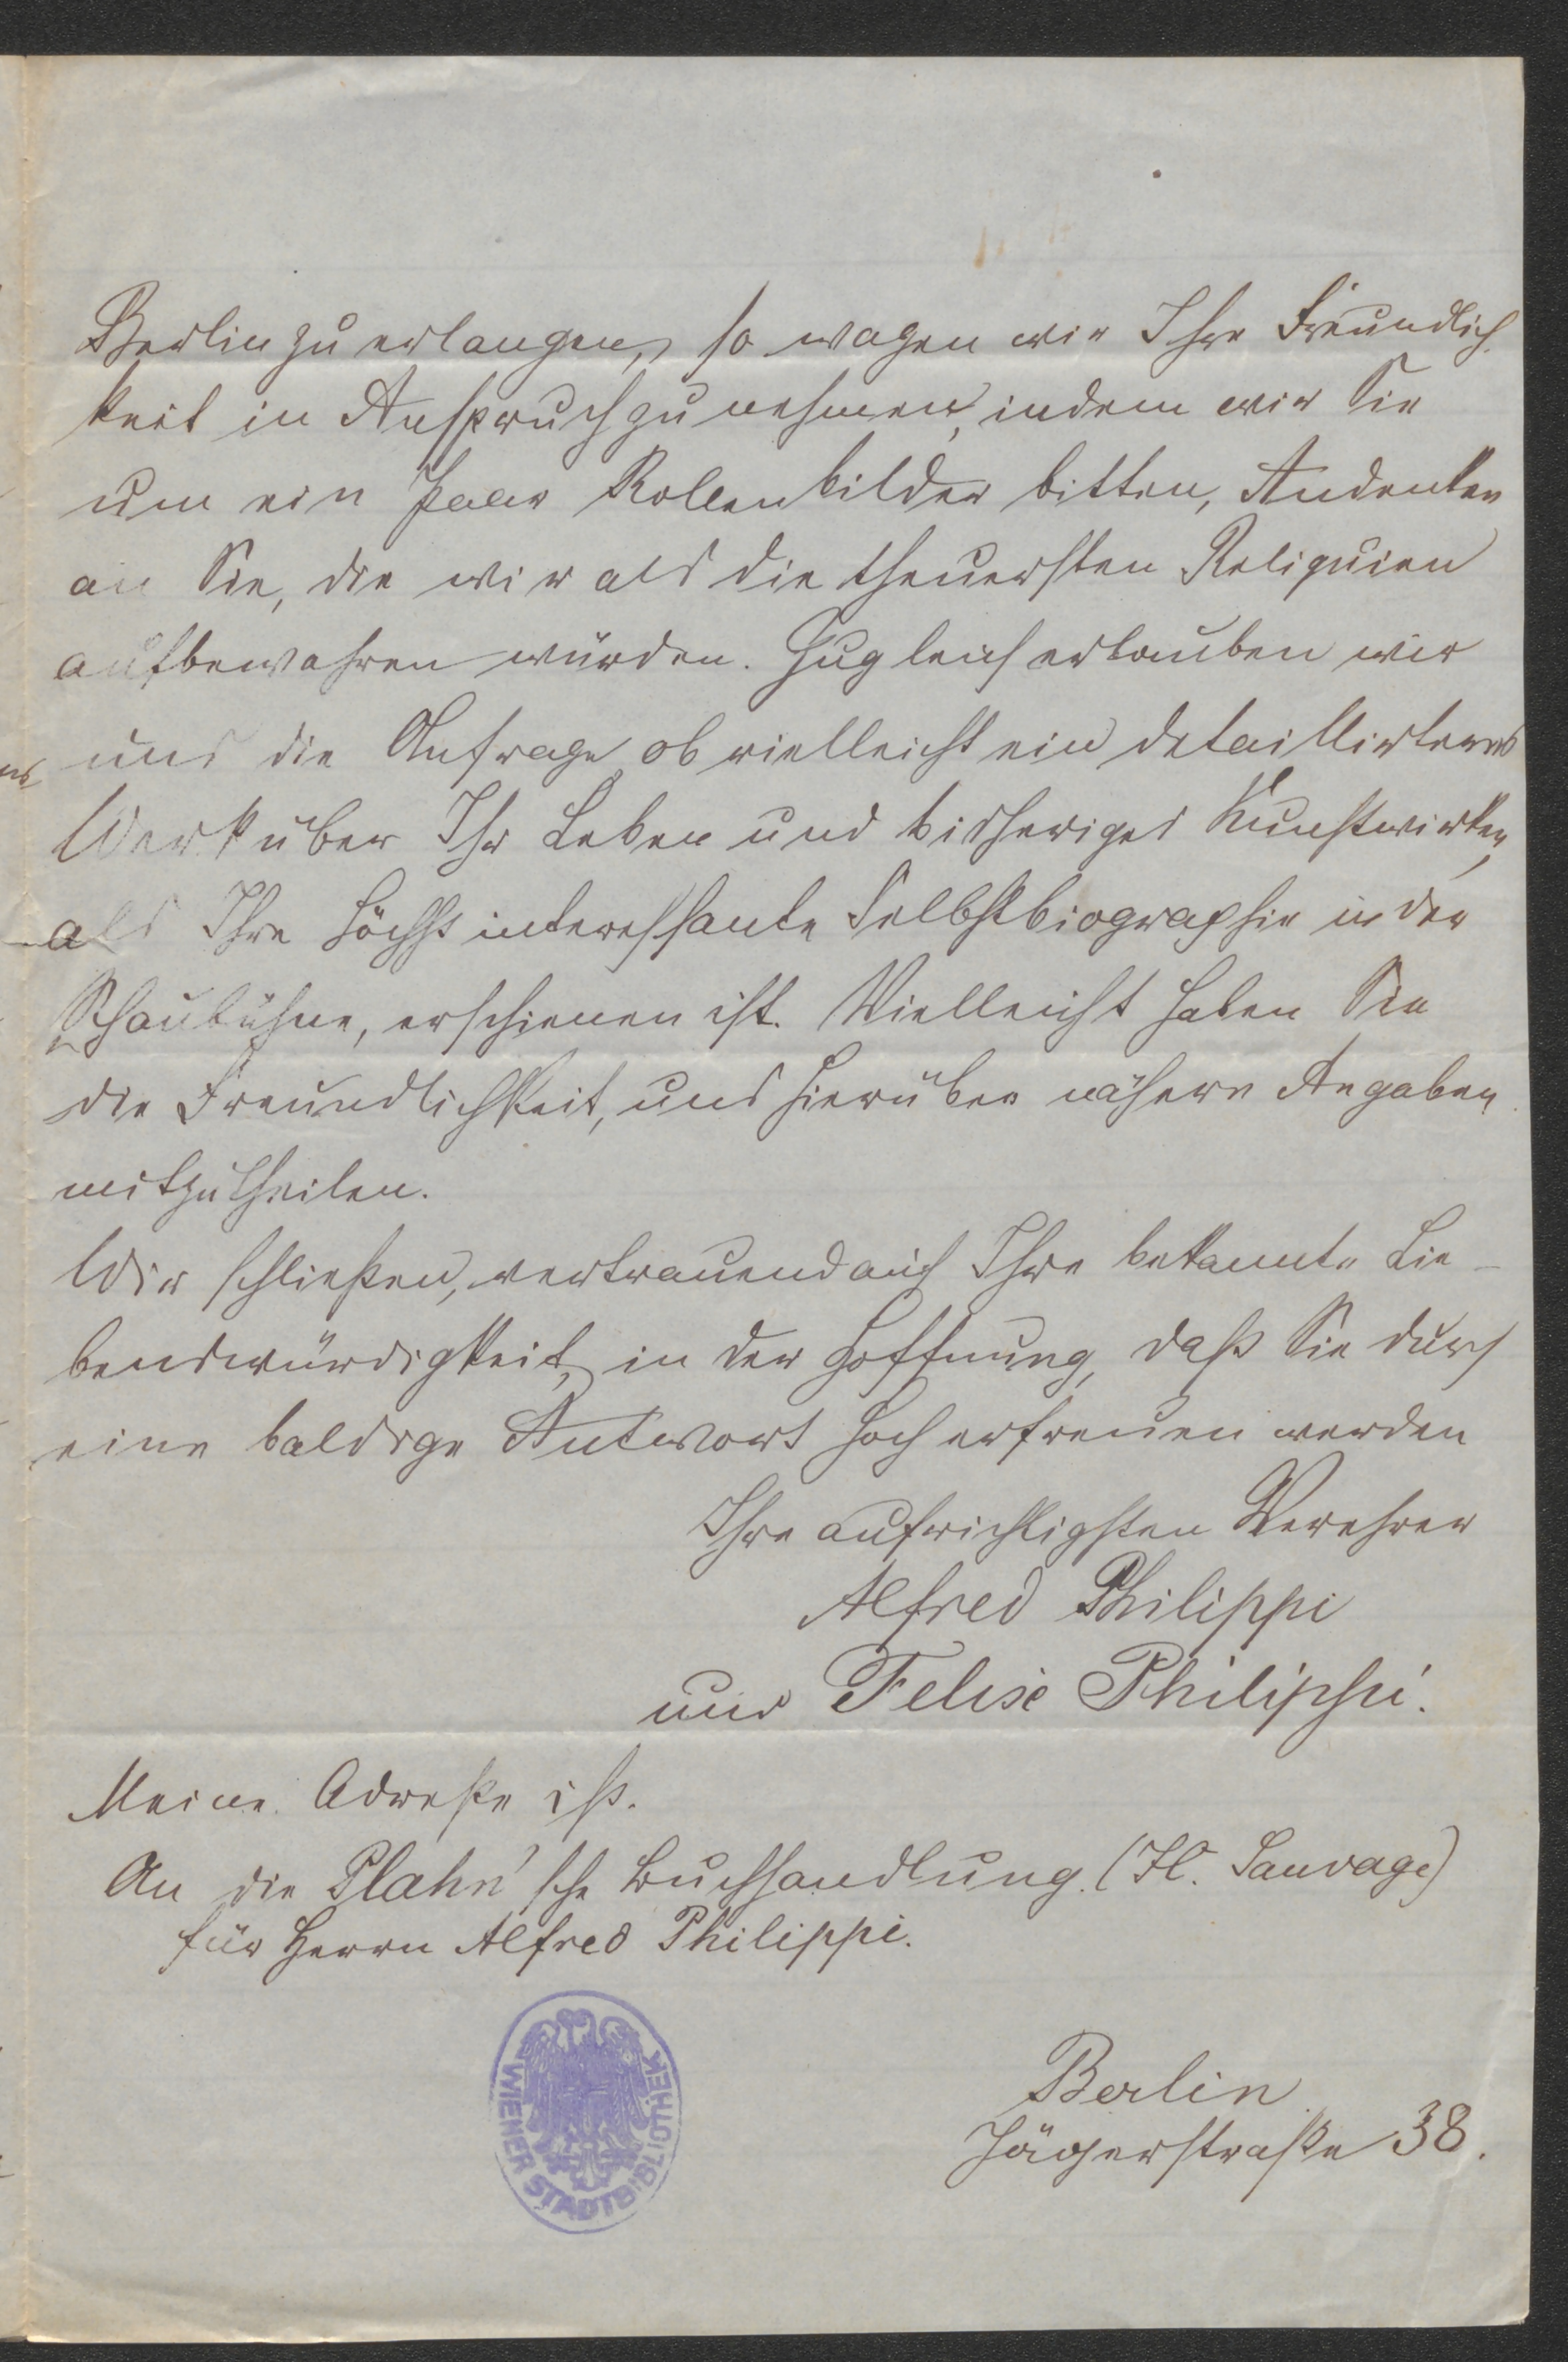 Berlin zu erlangen, so wagen wir Ihre Freundlich
keit in Anspruch zu nehmen, indem wir Sie
um ein Paar Rollenbilder bitten, Andenken
an Sie, die wir als die theuersten Reliquien
aufbewahren würden. Zugleich erlauben wir
uns die Anfrage ob vielleicht ein detaillirteres
Werk über Ihr Leben und bisheriges Kunstwirken,
als Ihre höchst interessante Selbstbiographie in der
Schaubühne, erschienen ist. Vielleicht haben Sie
die Freundlichkeit, uns hierüber nähere Angaben
mitzutheilen.
Wir schließen, vertrauend auf Ihre bekannte Lie-
benswürdigkeit, in der Hoffnung, daß Sie durch
eine baldige Antwort hoch erfreuen werden
Ihre aufrichtigsten Verehrer
Alfred Philippi
und Felix Philippi.
Meine Adreße ist.
An die Plahn'sche Buchhandlung. (H. Sauvage)
für Herrn Alfred Philippi.
Berlin
Jägerstraße 38.
WIENER STADTBIBLIOTHEK